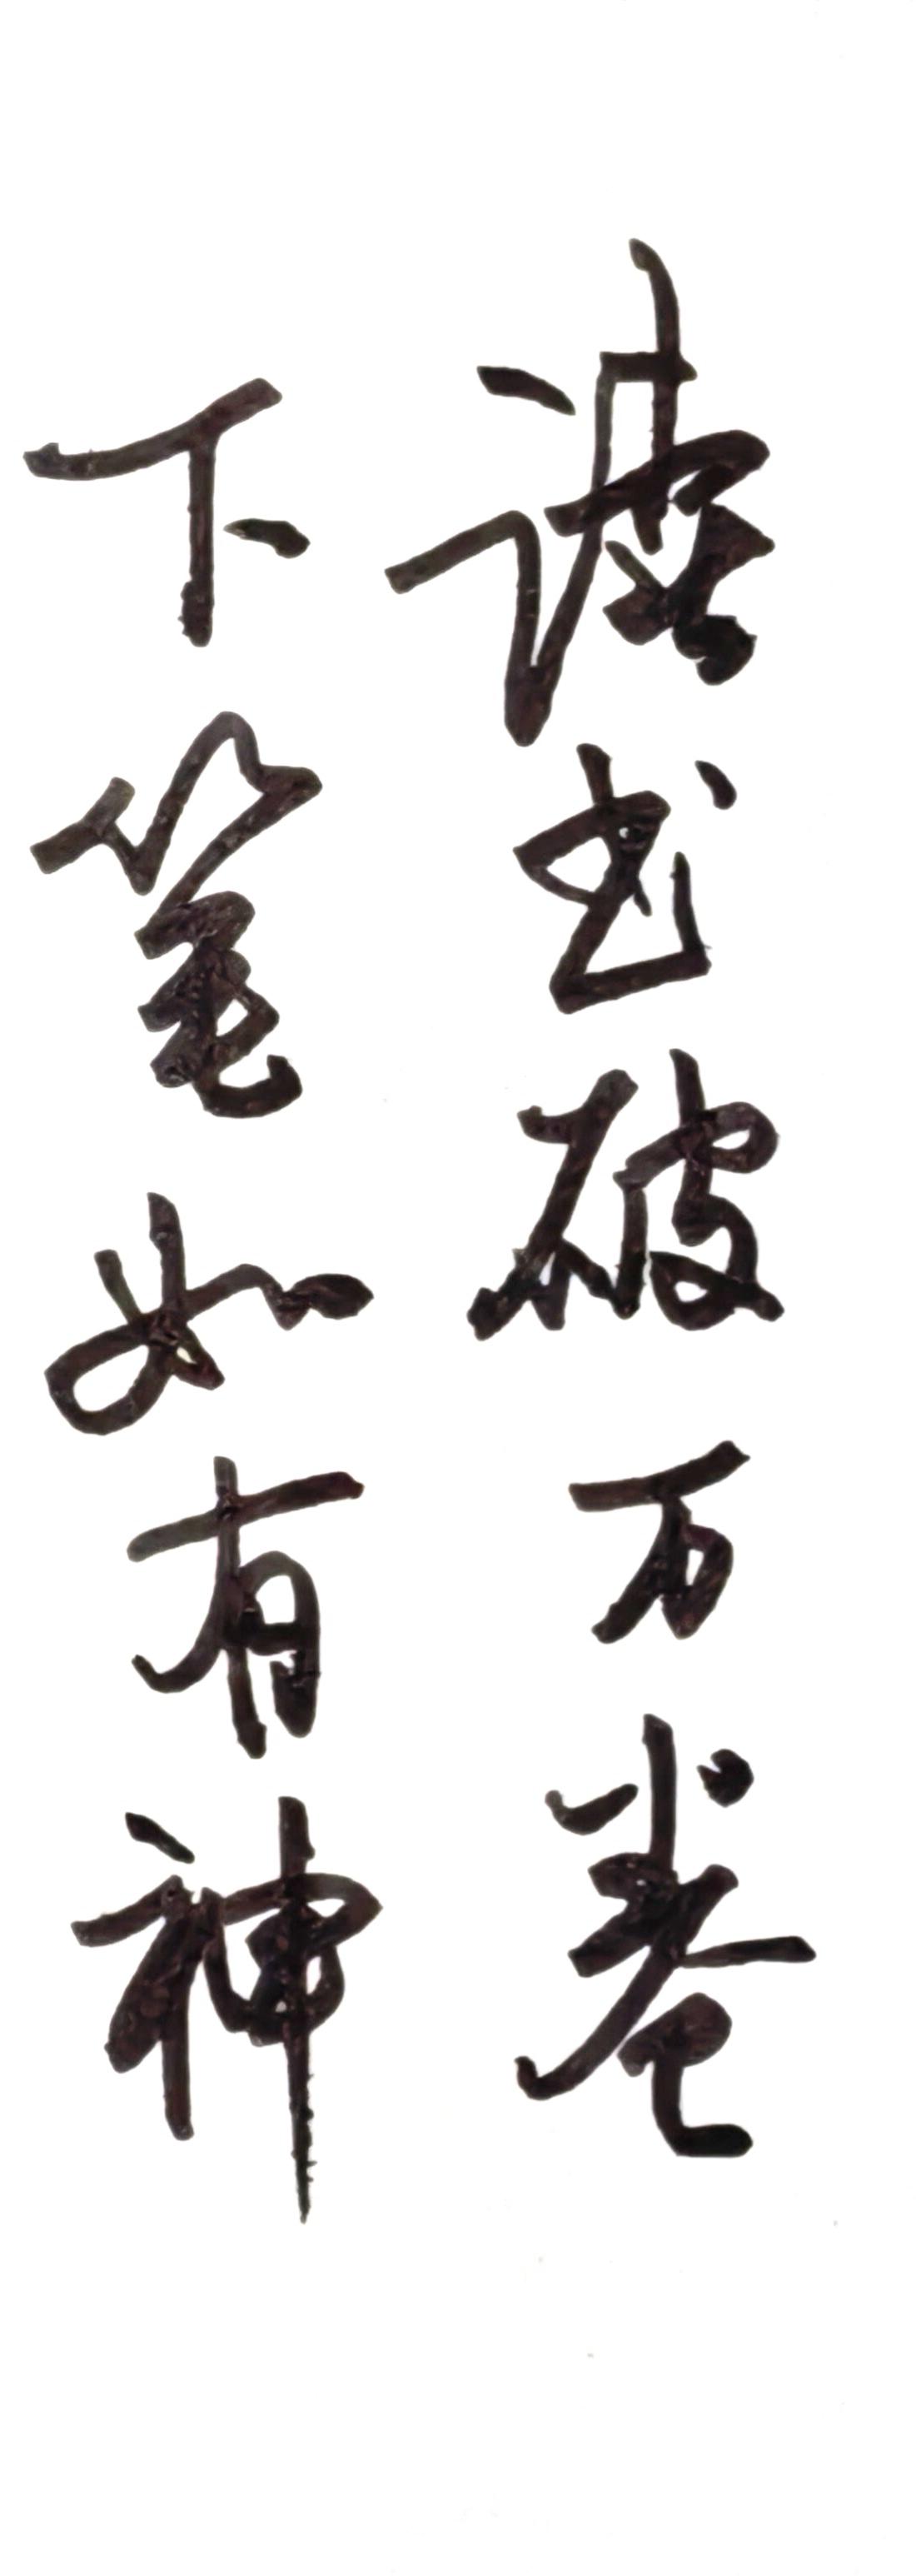 读书破万卷
下笔如有神